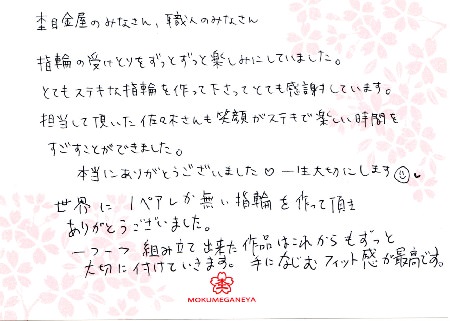 杢目金屋のみなさん、職人のみなさん
指輪の受けとりをずっとずっと楽しみにしていました。
とてもステキな指輪を作って下さってとても感謝しています。
担当して頂いた佐々木さんも笑顔がステキで楽しい時間を
すごすことができました。
本当にありがとうございました♡一生大切にします☺
世界に1ペアしか無い指輪を作って頂き
ありがとうございました。
一つ一つ組み立て出来た作品はこれからもずっと
大切に付けていきます。手になじむフィット感が最高です。
MOKUMEGANEYA